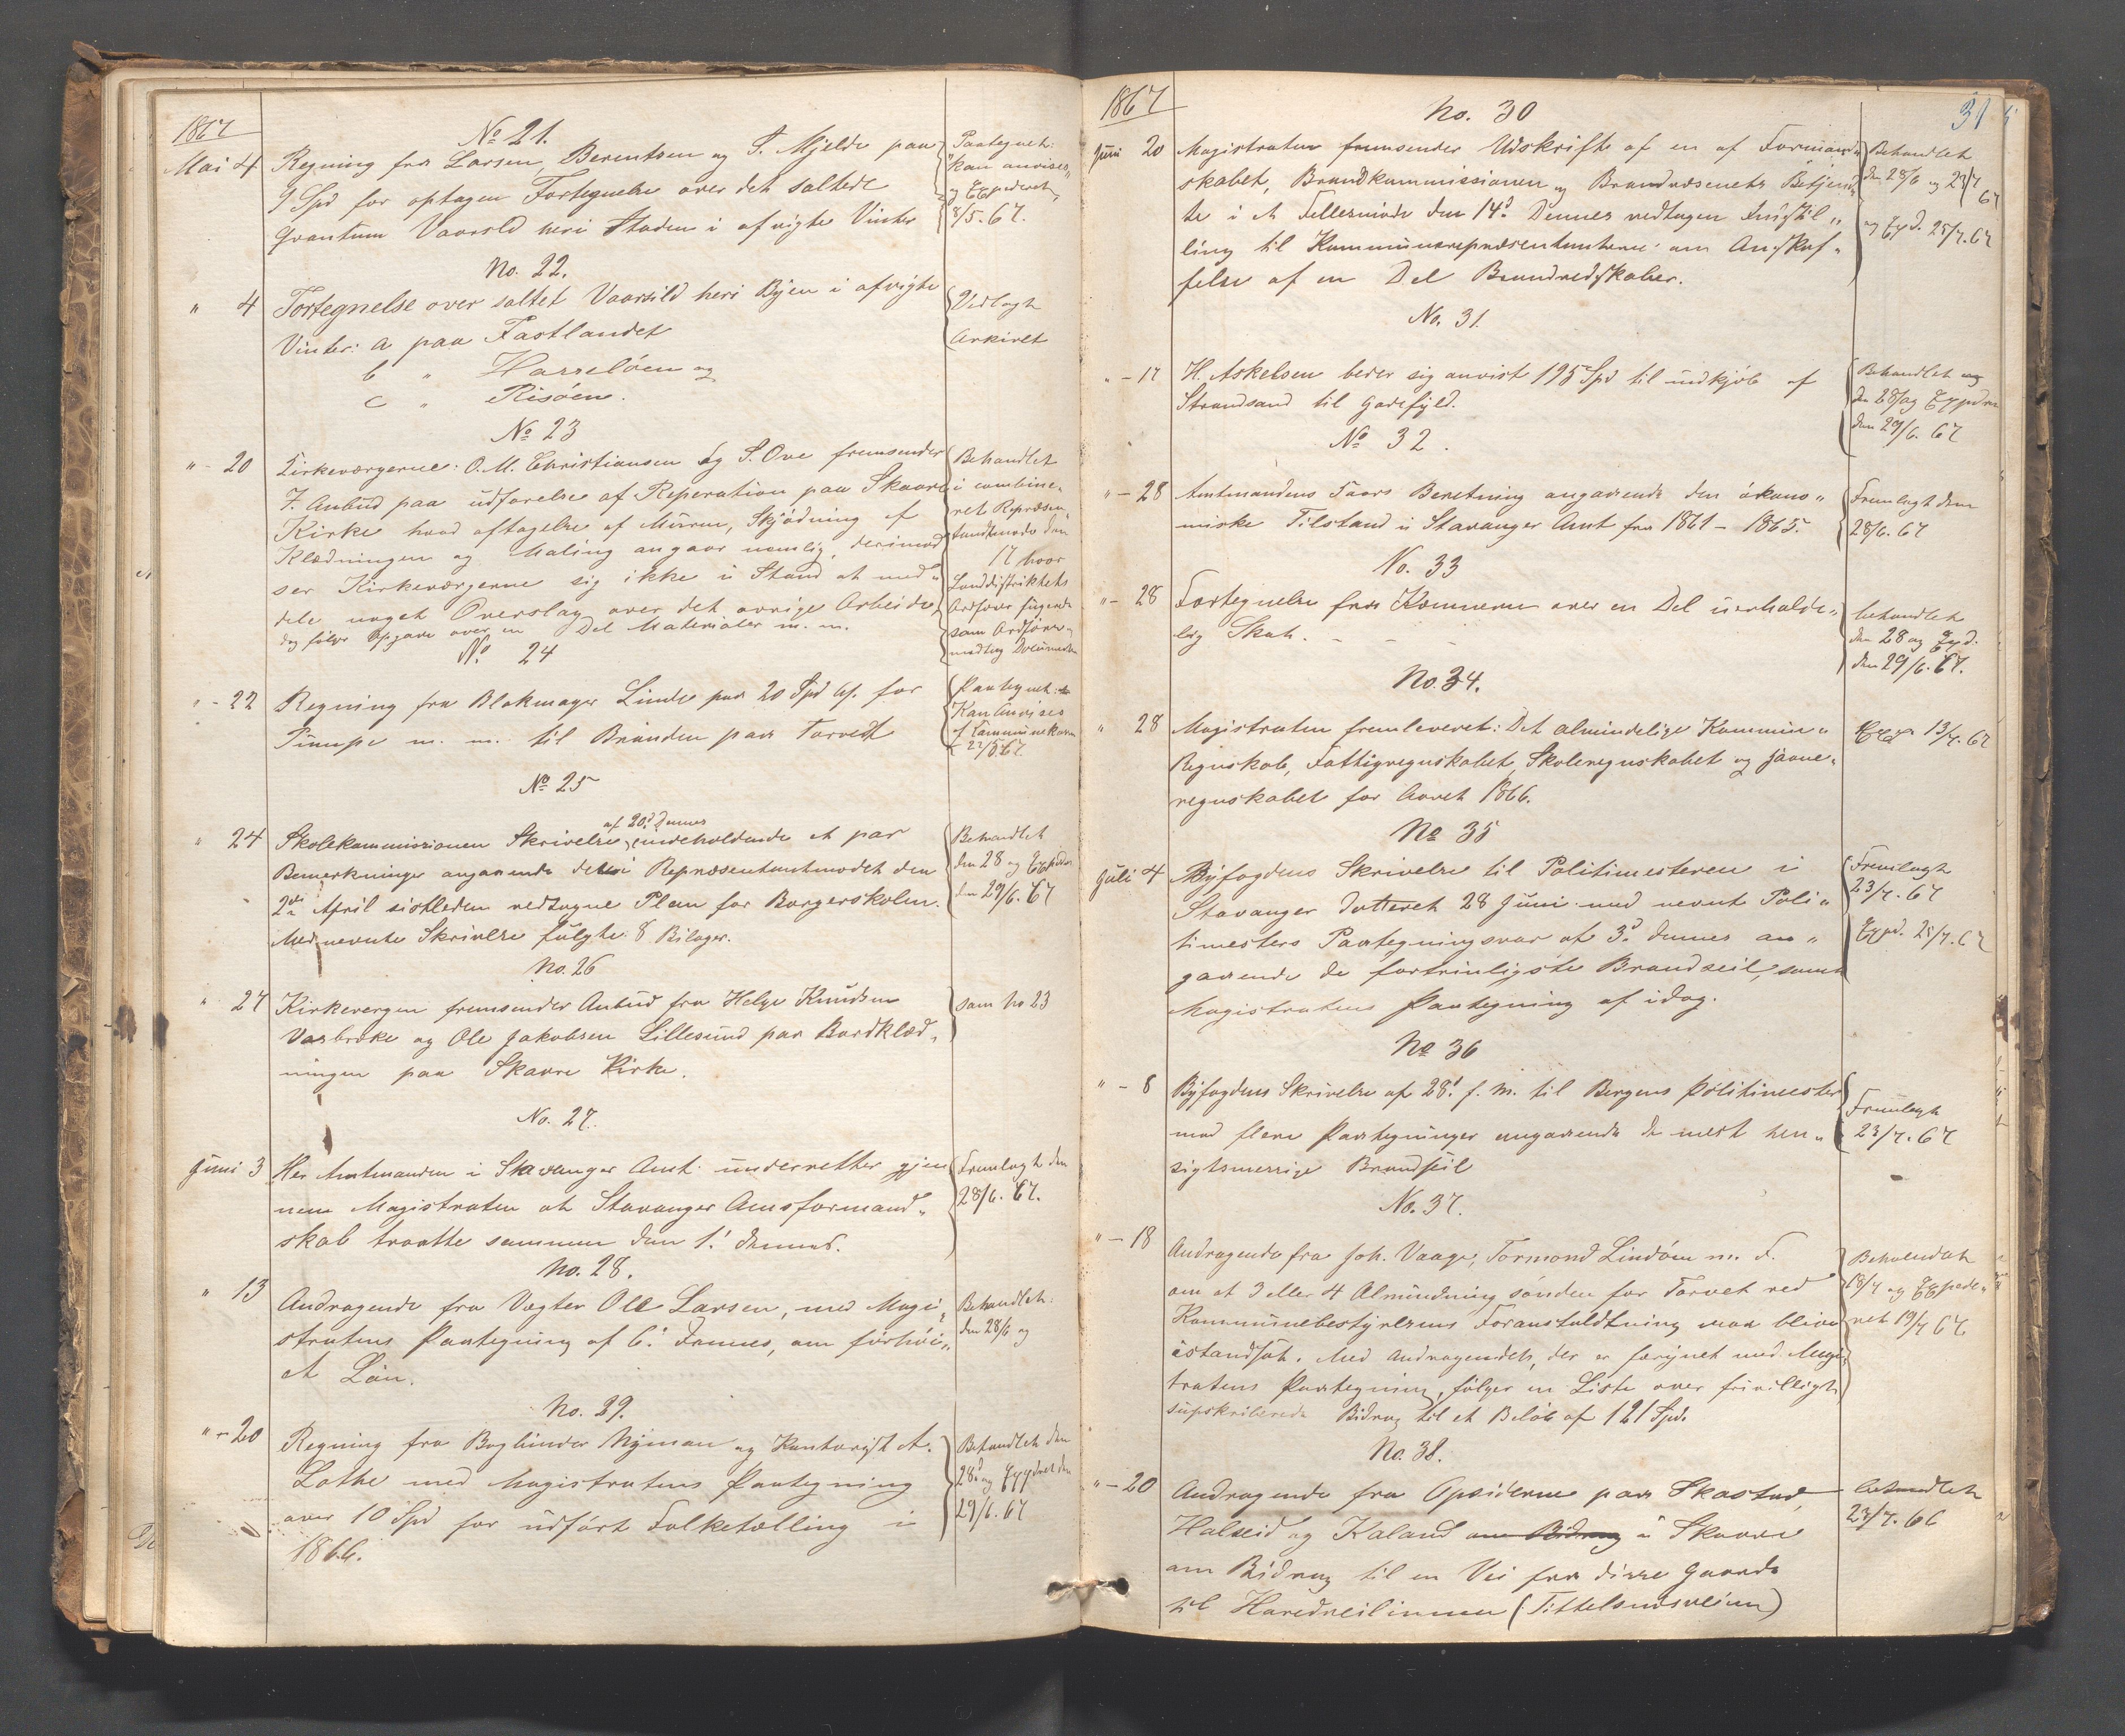 1867
No 21.
Mai 4 Regning fra Larsen, Berentsen og S. Mjelde paa
9 Spd for optagen Fortegnelse over det saltede
Qvantum Vaarsild heri Staden i afvigte Vinter
Paategnet:
"kan anvises"
og Exp̄ederet
8/5. 67.
No. 22.
" 4 Fortegnelse over saltet Vaarsild heri Byen i afvigte
Vinter: a paa Fastlandet
b " Hasseløen og
c " Risøen.
Vedlagt
Arkivet
No 23
" - 20 Kirkeværgerne: O. M. Christiansen og S. Ove fremsender
7. Anbud paa udførelse af Reperation paa Skaare
Kirke hvad aftagelse af Muren, Skjødning af
Klædningen og Maling angaar nemlig, derimod
ser Kirkeværgerne sig ikke i Stand at med"
dele noget Overslag over det øvrige Arbeide,
dog følger Opgave over en Del Materialer m. m.
Behandlet
i combine"
ret Repræsen"
tandtmøde den
17 hvor
Landdistriktets
Ordfører fungerede
som Ordfører og
modtog Documenter
No. 24
" - 22 Regning fra Blokmager Linde paa 20 Spd for
Pumpe m. m. til Brønden paa Torvet
Paategnet:
Kan Anvises
af Communekassen
22/5 67.
No 25
" 24 Skolekommissionen Skrivelse af 20d Dennes indeholdende et par
Bemerkninger angaaende den i Repræsentantmødet den
2den April sistleden vedtagne Plan for Borgerskolen.
Med nevnte Skrivelse fulgte 8 Bilager.
Behandlet
den 28 og Expederet
den 29/6. 67
No. 26
" 27 Kirkevergen fremsender Anbud fra Helge Knudsen
Vasbrække og Ole Jakobsen Lillesund paa Bordklæd"
ningen paa Skaare Kirke.
som No 23
No. 27.
Juni 3 Her Amtmanden i Stavanger Amt underretter gjen
nem Magistraten at Stavanger Amsformand"
skab traatte sammen den 1. dennes.
Fremlagt den
28/6. 67.
No. 28.
" 13 Andragende fra Vægter Ole Larsen, med Magi"
stratens Paategning af 6. Dennes, om forhøi"
et Løn.
Behandlet:
den 28/6 og
No. 29.
" - 20 Regning fra Bogbinder Nyman og Kontorist A.
Lothe med Magistratens Paategning
over 10 Spd for udført Folketælling i
1866.
Behandlet den
28d og Expederet den
29/6. 67
1867
31
No. 30
Juni 20 Magistraten fremsender Udskrift af en af Formands
skabet, Brandkommissionen og Brandvæsenets Betjen
te i et Fellesmøde den 14d Dennes vedtagen Indstil"
ling til Kommunerepræsentanterne om Anskaf"
felse af en Del Brandredskaber.
Behandlet
den 28/6 og 23/7
67
og Exd. 25/7. 67
No. 31.
" - 17 H. Askelsen beder sig anvist 195 Spd til indkjøb af
Strandsand til Gadefyld.
Behandlet og
den 28/6 og Expederet
den 29/6. 67
No 32.
" - 28 Amtmandens 5aars Beretning angaaende den økono"
miske Tilstand i Stavanger Amt fra 1861 - 1865.
Fremlagt den
28/6. 67
No. 33
" - 28 Fortegnelse fra Kæmneren over en Del uerholde"
lig Skat. - -
behandlet
den 28 og Exd.
den 29/6. 67.
No. 34.
" 28 Magistraten fremleveret: Det almindelige Kommun"
Regnskab, Fattigregnskabet, Skoleregnskabet og Havne"
regnskabet for Aaret 1866.
Exp. 13/7. 67
No 35
Juli 4 Byfogdens Skrivelse til Politimesteren i
Stavanger datteret 28 Juni med nevnt Poli"
timesters Paategningsvar af 3d dennes an"
gaaende de fortrinligste Brandseil, samt
Magistratens Paategning af idag.
Fremlagt
23/7. 67
Expd. 25/7. 67
No 36
" - 8 Byfogdens Skrivelse af 28. f. M. til Bergens Politimester
med flere Paategninger angaaende de mest hen"
sigtsmessige Brandseil
Fremlagt
23/7. 67
No. 37.
" - 18 Andragende fra Joh. Vaage, Tormond Lindøen m. F.
om at 3 eller 4 Almindning sønden for Torvet ved
Kommunebestyrelsens Foranstaldtning maa blive
istandsat. Med Andragendet, der er forsynet med Magi"
tratens Paategning, følger en Liste over frivilligt
supskriberede Bidrag til et Beløb af 121 Spd.
Behandlet
18/7 og Expede"
ret 19/7 67.
No. 38.
" - 20 Andragende fra Opsiderne paa Skastad,
Halseid og Kaland om Bidrag i Skaare
om Bidrag til en Vei fra disse Gaarde
til Hovedveilinien (: Tittelsnesveien)
behandlet
23/7. 66